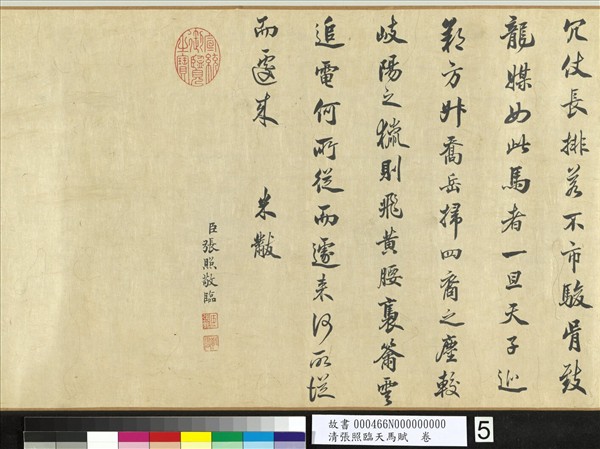 冗仗長排若不市駿骨致
龍媒如此馬者一旦天子巡
朔方升喬岳掃四裔之塵較
岐陽之獵則飛黃腰褭籋雲
追電何所從而遽来何所從
而遽来　米黻
臣張照敬臨
宣統御覽之寶
故書 000466N000000000
清張照臨天馬賦　卷
5